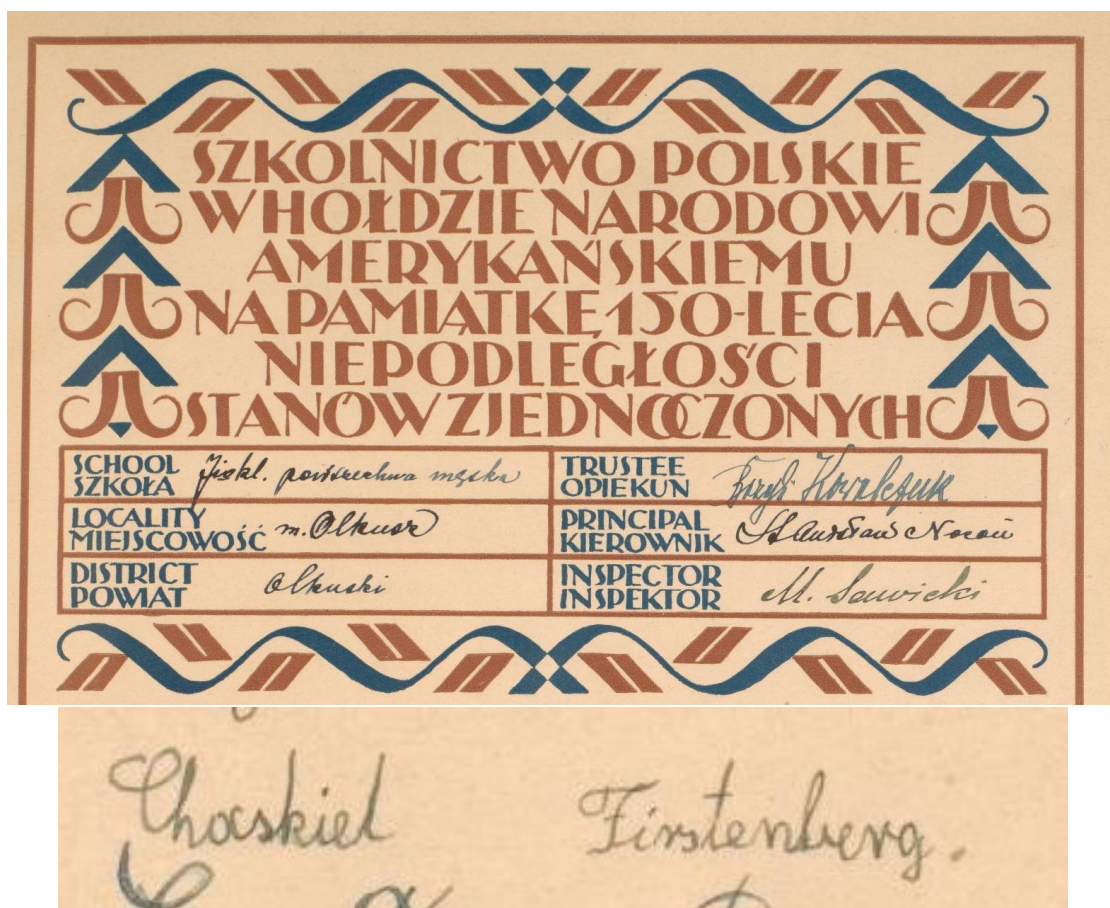 SZKOLNICTWO POLSKIE
W HOŁDZIE NARODOWI
AMERYKAŃSKIEMU
NA PAMIĄTKĘ 150-LECIA
NIEPODLEGŁOŚCI
STANÓW ZJEDNOCZONYCH
SCHOOL
SZKOŁA 7io kl. powszechna męska
LOCALITY
MIEJSCOWOŚĆ m. Olkusz
DISTRICT
POWIAT Olkuski
TRUSTEE
OPIEKUN Kowalczuk
PRINCIPAL
KIEROWNIK Stanisław Nocoń
INSPECTOR
INSPEKTOR M. Sawicki
Chaskiel Firstenberg.